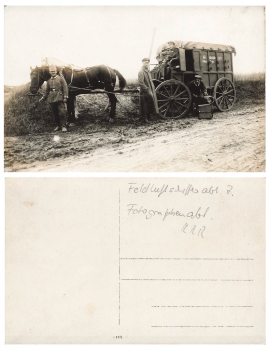 Feldluftschifferabt 7.
Fotographenabt.